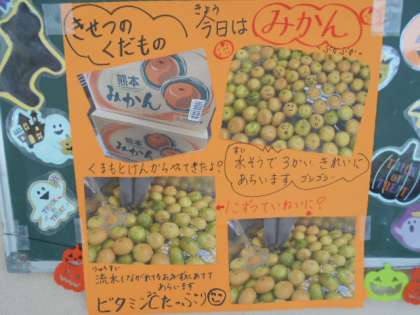 きせつの
くだもの
きょう
今日は
みかん
ぷかぷか〜
熊本
みかん
熊本
みかん
くまもとけんからやってきたよ♪
すい
水そうで3かい、きれいに
あらいます。ゴシゴシ
1こずつていねいに♪
りゅうすい
流水(ながれてるおみず)にあてて
あらいます
ビタミンCたっぷり